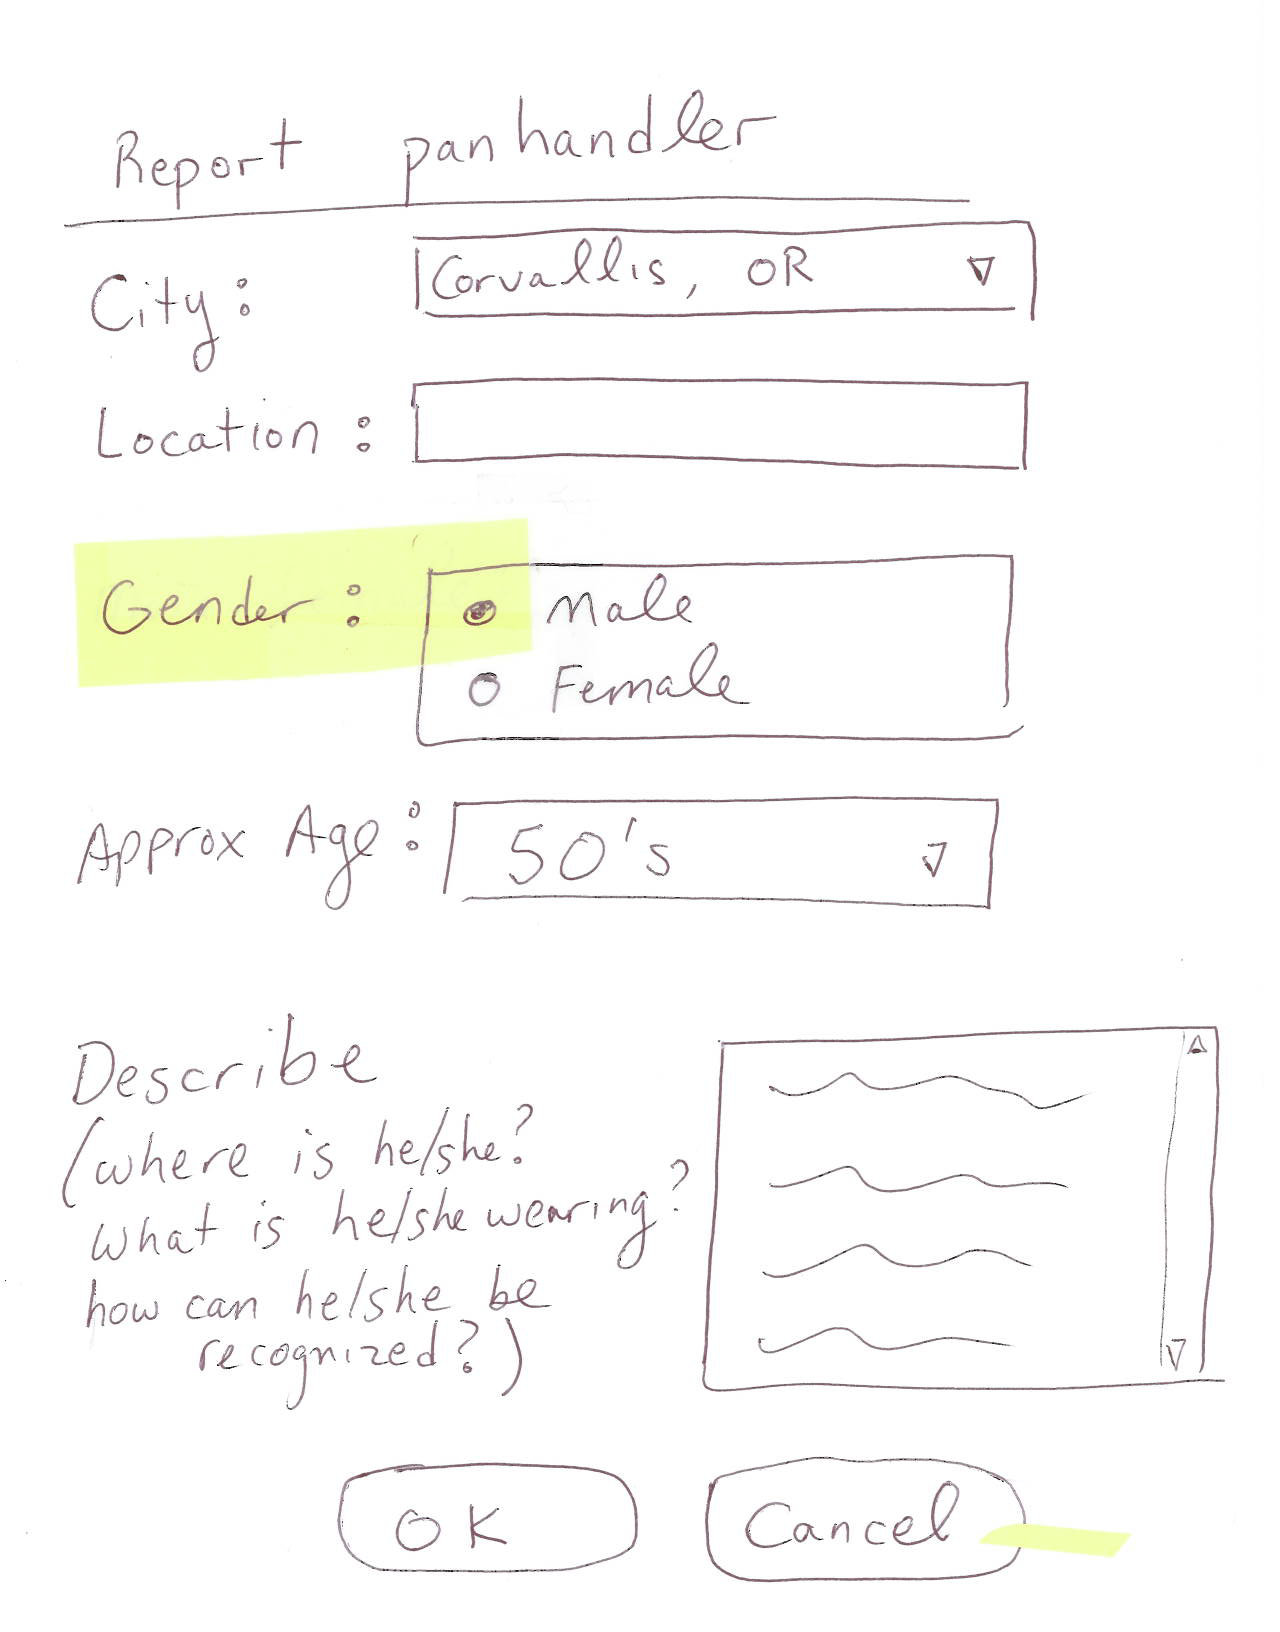 Report panhandler
City: Corvallis, OR
Location:
Gender: Male
Female
Approx Age: 50's
Describe
(where is he/she?
what is he/she wearing?
how can he/she be
recognized?)
OK Cancel